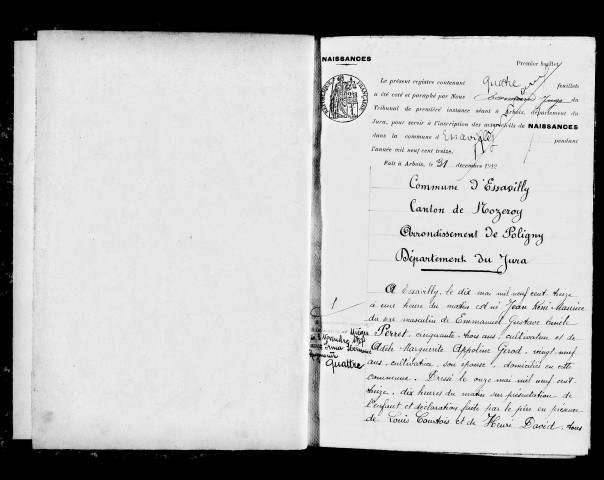 NAISSANCES
Premier feuillet
Le présent registre contenant Quatre feuillets
a été coté et paraphé par Nous Juge du
Tribunal de première instance séant à Arbois, département du
Jura, pour servir à l'inscription des actes de NAISSANCES
dans la commune d'Essavilly pendant
l'année mil neuf cent treize.
Fait à Arbois, le 31 décembre 1912
Commune d'Essavilly
Canton de Nozeroy
Arrondissement de Poligny
Département du Jura
1
A Essavilly, le dix mai mil neuf cent treize
à une heure du matin est né Jean Réné Maurice
du sexe masculin de Emmanuel Gustave Emile
Perret, cinquante-trois ans, cultivateur et de
Adèle Marguerite Appoline Girod, vingt neuf
ans, cultivatrice, son épouse, domiciliés en cette
commune. Dressé le onze mai mil neuf cent
treize, dix heures du matin sur présentation de
l'enfant et déclaration faite par le père en présence
de Louis Courtois et de Henri David, tous
Novembre
Quattre